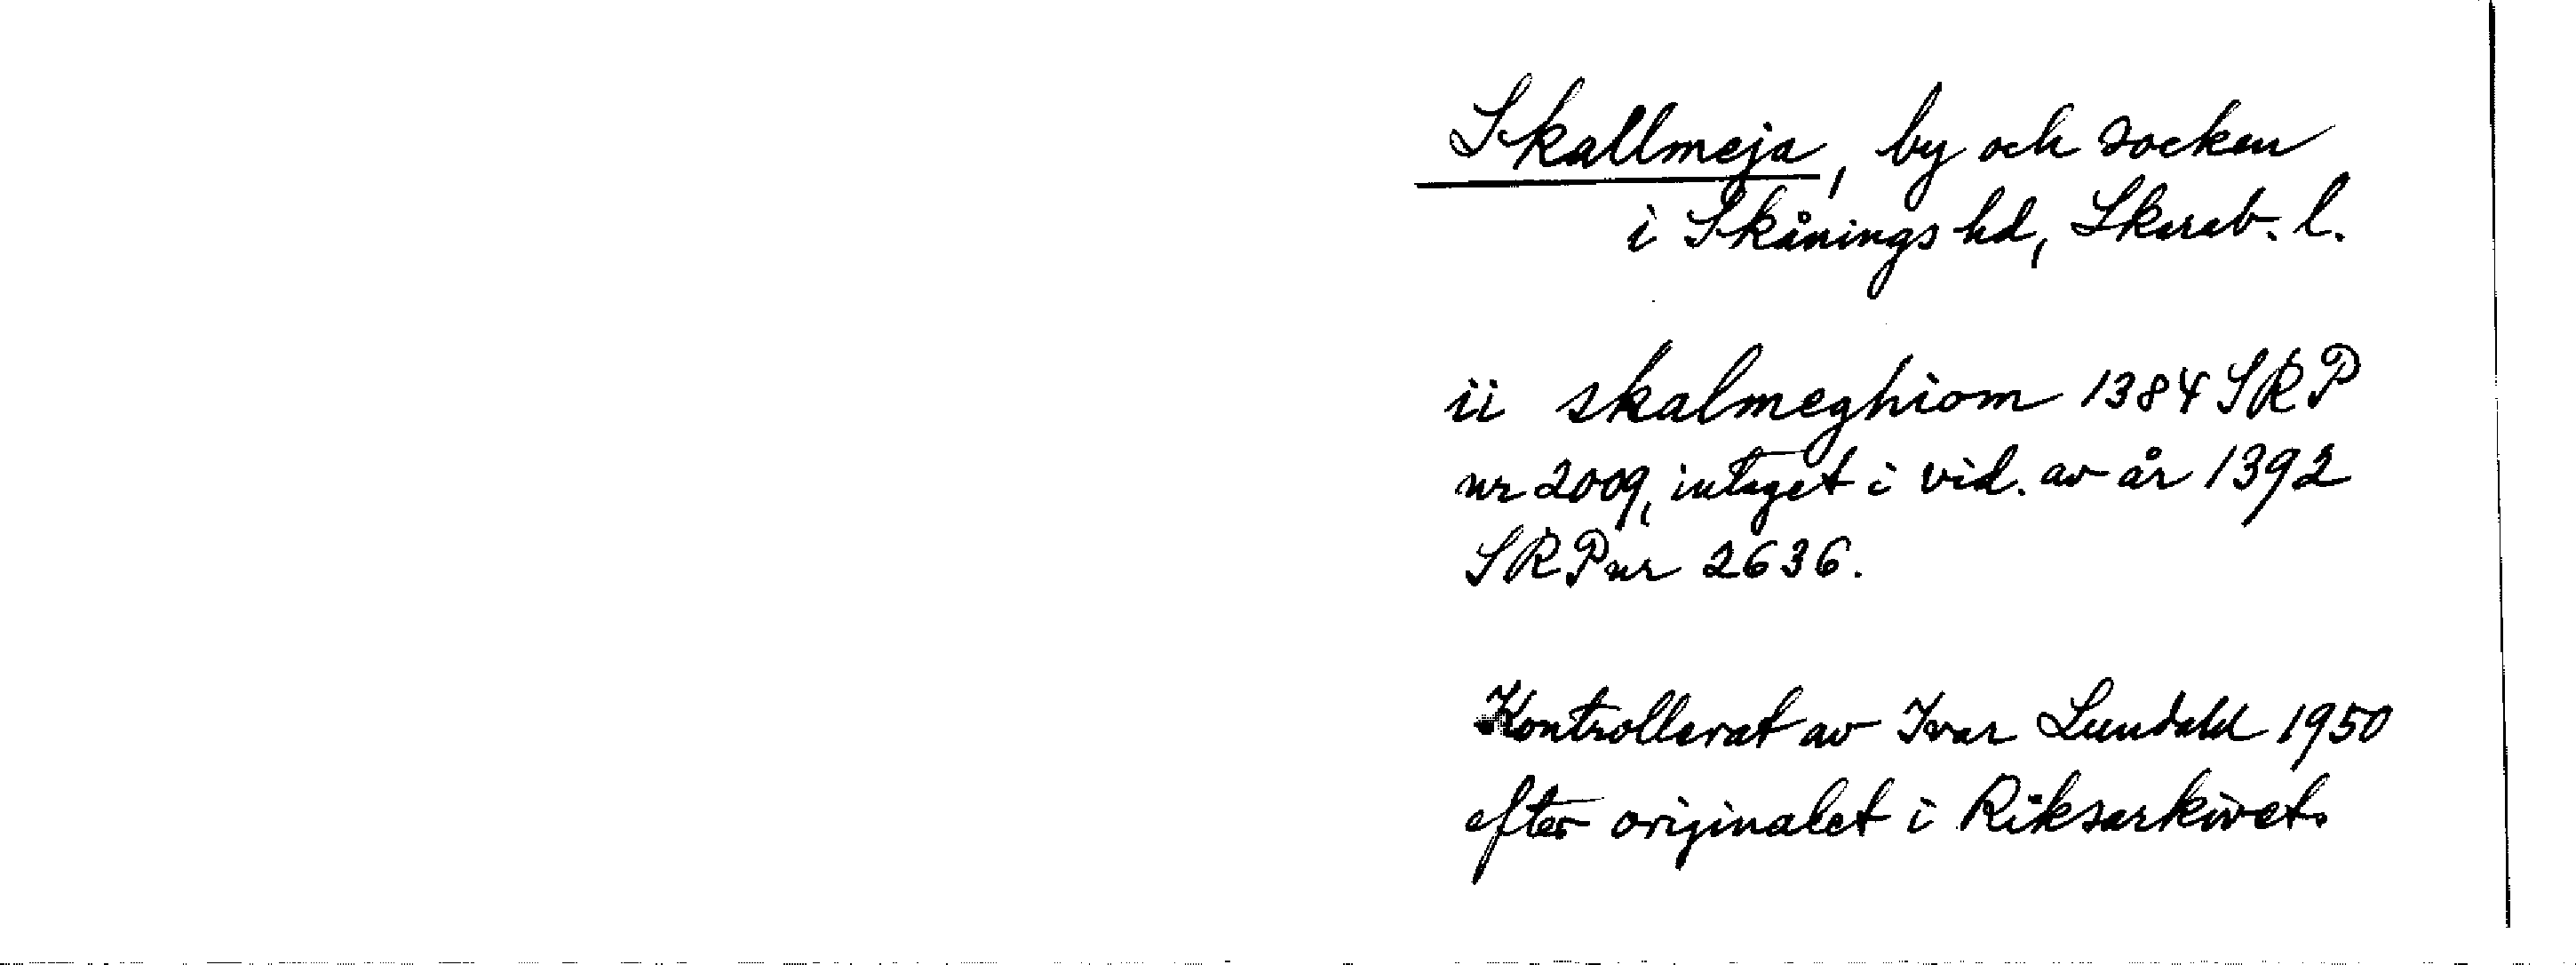 Skallmeja, by och socken
i Skånings hd, Skarab. l.
ii skalmeghiom 1384 SRP
nr 2009, intaget i vid. av år 1392
SRP nr 2636.
Kontrollerat av Ivar Lundahl 1950
efter originalet i Riksarkivet.